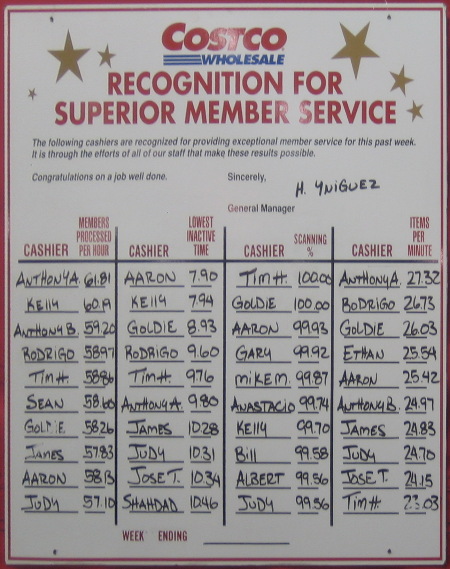 COSTCO
WHOLESALE
RECOGNITION FOR
SUPERIOR MEMBER SERVICE
The following cashiers are recognized for providing exceptional member service for this past week.
It is through the efforts of all of our staff that make these results possible.
Congratulations on a job well done.
Sincerely,
H. YNIGUEZ
General Manager
CASHIER MEMBERS PROCESSED PER HOUR
ANTHONY A. 61.81
KELLY 60.19
ANTHONY B. 59.20
RODRIGO 58.97
TIM H. 58.86
SEAN 58.60
GOLDIE 58.26
JAMES 57.83
AARON 58.13
JUDY 57.10
CASHIER LOWEST INACTIVE TIME
AARON 7.90
KELLY 7.94
GOLDIE 8.93
RODRIGO 9.60
TIM H. 9.76
ANTHONY A. 9.80
JAMES 10.28
JUDY 10.31
JOSE T. 10.34
SHAHDAD 10.46
CASHIER SCANNING %
TIM H. 100.00
GOLDIE 100.00
AARON 99.93
GARY 99.92
MIKE M. 99.87
ANASTACIO 99.74
KELLY 99.70
BILL 99.58
ALBERT 99.56
JUDY 99.56
CASHIER ITEMS PER MINUTE
ANTHONY A. 27.32
RODRIGO 26.73
GOLDIE 26.03
ETHAN 25.54
AARON 25.42
ANTHONY B. 24.97
JAMES 24.83
JUDY 24.70
JOSE T. 24.15
TIM H. 23.03
WEEK ENDING